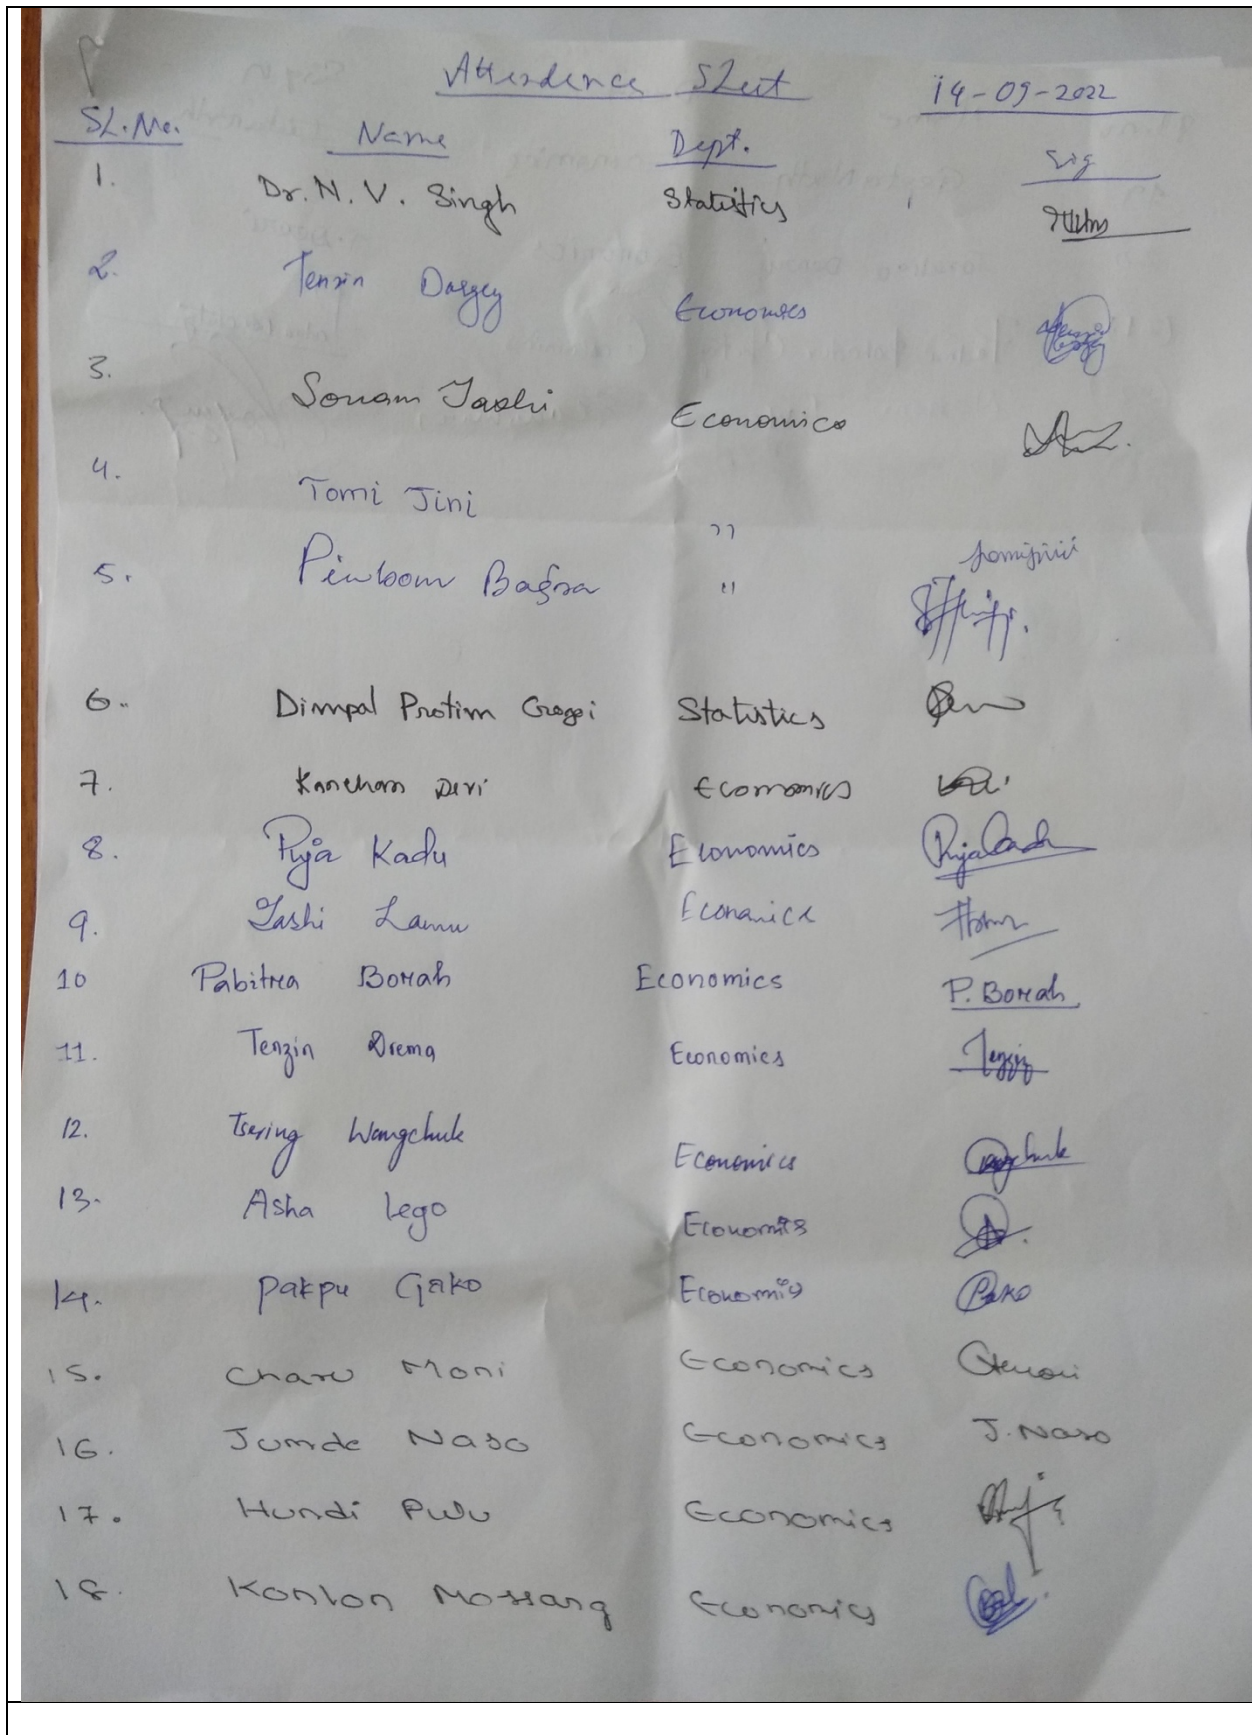 Attendence Sheet 14-09-2022
SL.No. Name Dept. Sig
1. Dr. N. V. Singh Statistics
2. Tenzin Dargey Economics
3. Sonam Tashi Economics
4. Tomi Jini "
5. Bagra " Tomijini
6. Dimpal Protim Gogoi Statistics
7. Kancham Devi Economics
8. Puja Kadu Economics Puja Kadu
9. Tashi Lamu Economics
10 Pabitra Borah Economics P. Borah
11. Tenzin Drema Economics Tenzin
12. Tsering Wangchuk Economics Wangchuk
13. Asha Lego Economics
14. Pakpu Gako Economics
15. Charu Moni Economics
16. Jumde Naso Economics J. Naso
17. Hundi Pulu Economics
18. Konlon Mossang Economics